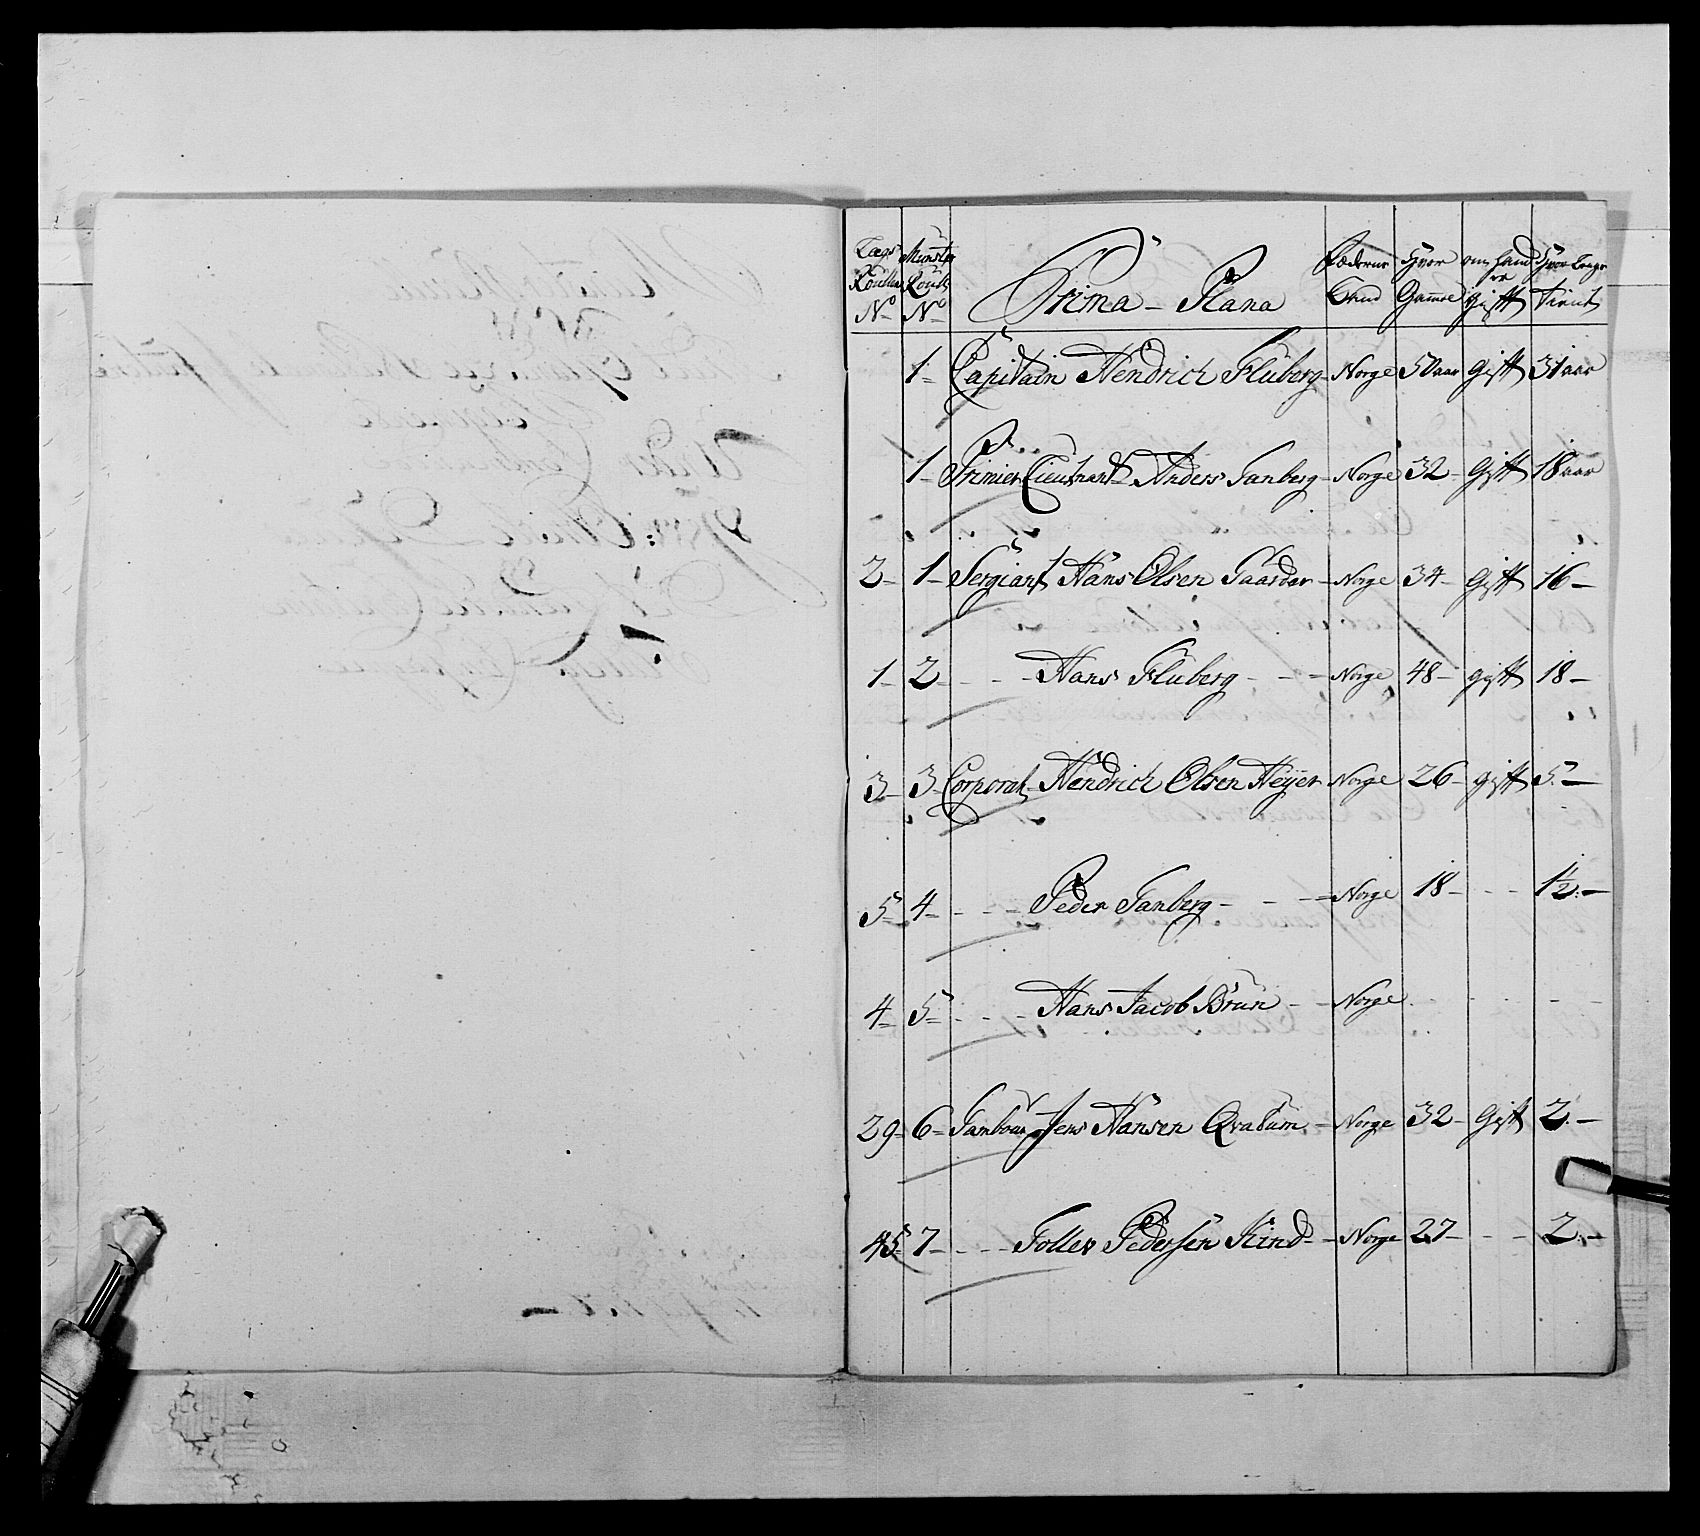 Lægs Roulles No Munster Roulls No Prima - Plana Føderne Land Hvor Gammel om hand er Gift Hvor Længe Tient
1 Capitain Hendrich Fluberg Norge 50 aar Gift 31 aar
1 Primier Lieutnant Anders Tanberg Norge 32 Gift 18 aar
2 1 Sergiant Hans Olsen Gaarder Norge 34 Gift 16
1 2 Hans Fluberg Norge 48 gift 18
3 3 Corporal Hendrich Olsen Heyer Norge 26 gift 5
5 4 Peder Tanberg Norge 18 - - 1½
4 5 Hans Jacob Brun Norge
29 6 Tambour Jens Hansen Qvalum Norge 32 Gift 2
45 7 Tollev Pedersen Kind Norge 27 - - 2